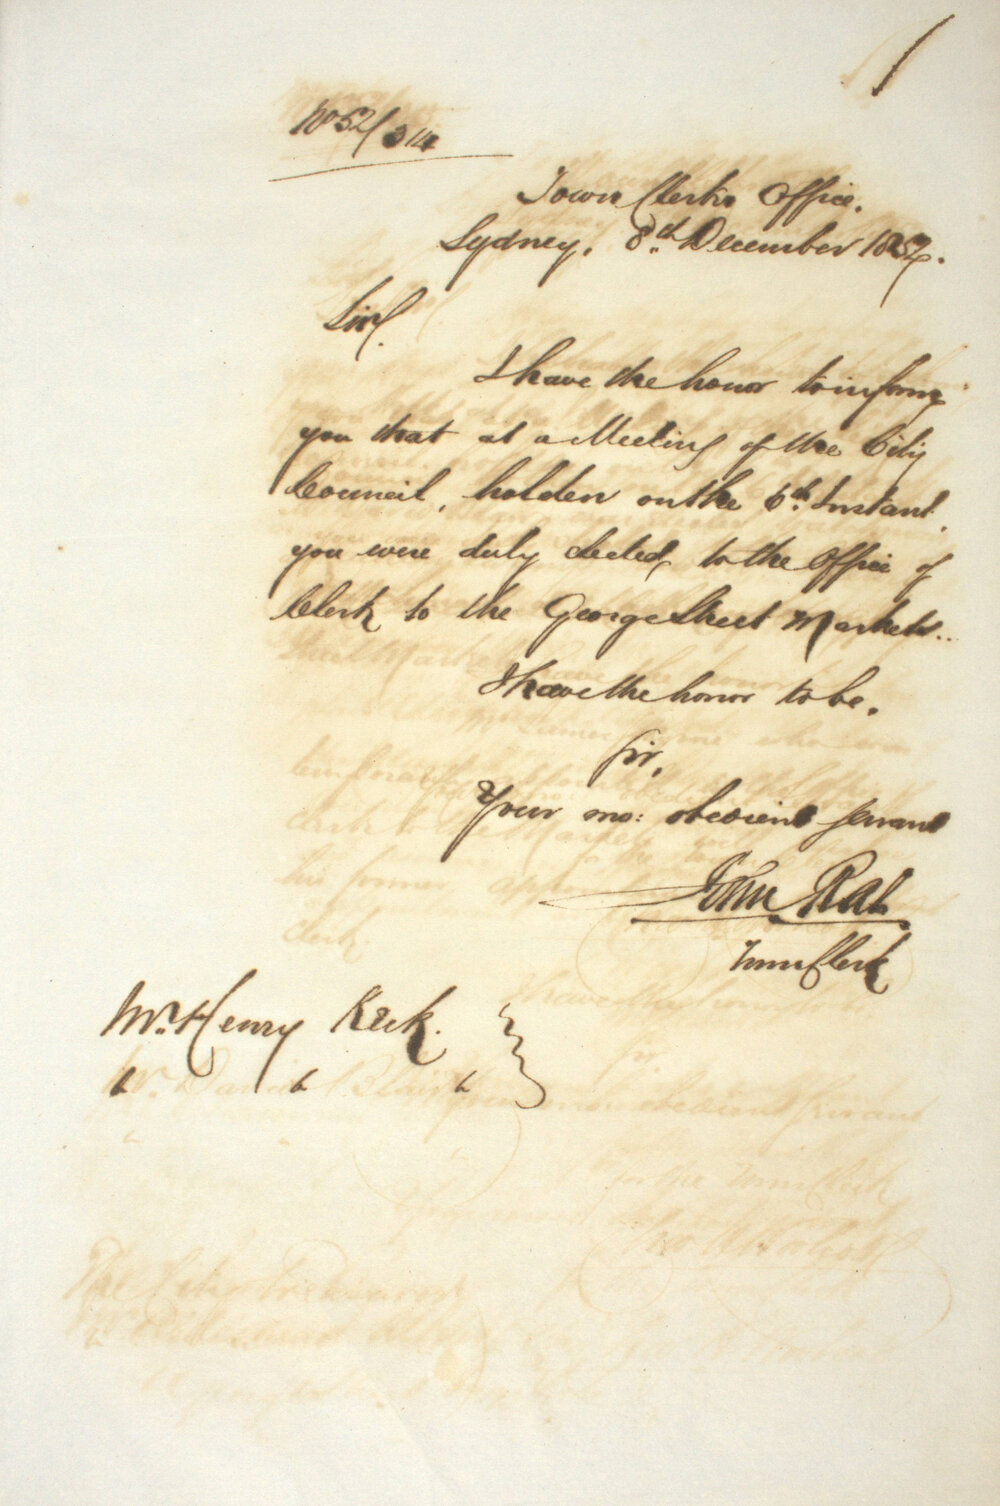 No 52/314
Town Clerk's Office.
Sydney, 8th December 1852.
Sir,
I have the honor to inform
you that at a Meeting of the City
Council, holden on the 6th Instant,
you were duly elected to the Office of
Clerk to the George Street Markets.
I have the honor to be,
Sir,
Your mo: obedient servant
John Rae
Town Clerk
Mr. Henry Keck.